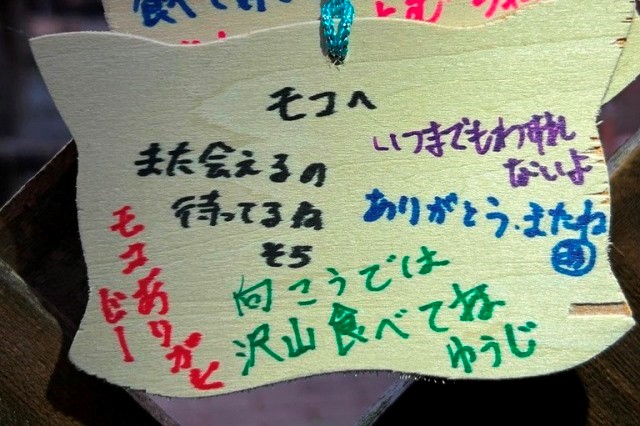 モコへ
また会えるの
待ってるね
そら
いつまでもわすれ
ないよ
ありがとう、またね
モコありがと
向こうでは
沢山食べてね
ゆうじ